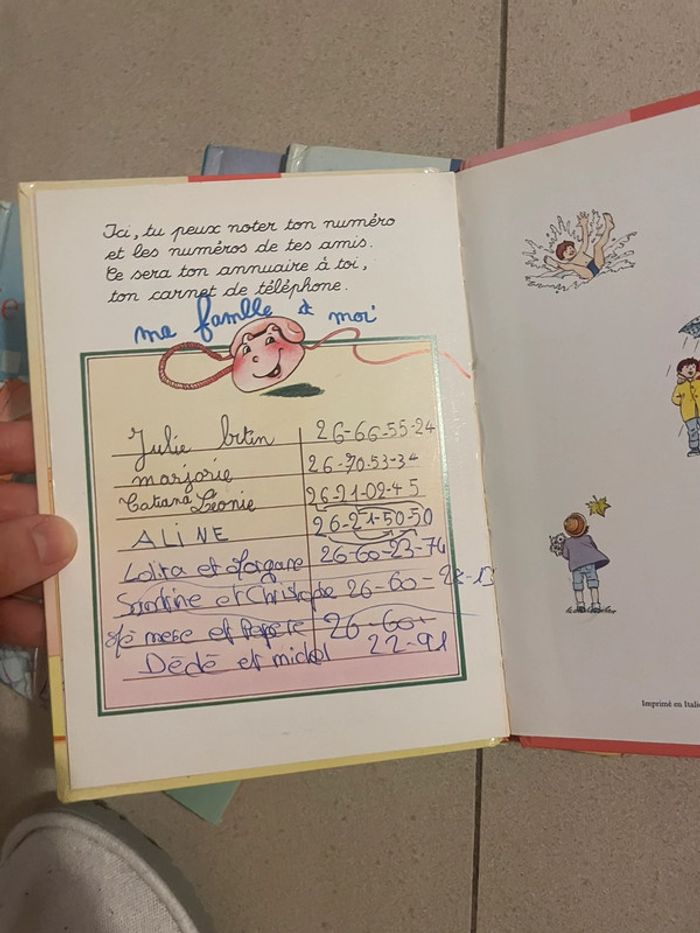 Ici, tu peux noter ton numéro
et les numéros de tes amis.
Ce sera ton annuaire à toi,
ton carnet de téléphone.
ma famlle et moi
Julie 26-66-55-24
marjorie 26-70-53-34
Tatiana Léonie 26-21-02-45
ALINE 26-21-50-50
Lolita et Morgane 26-60-23-74
Sandrine et Christophe 26-60-
mere et Pepere 26-60-
Dédé et michel 22-91
Imprimé en Italie